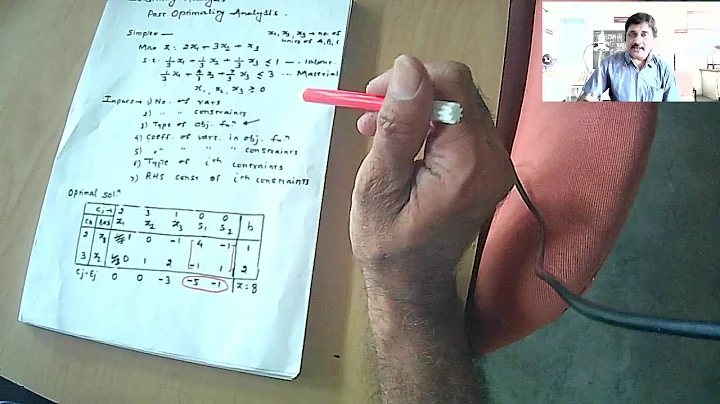 Analysis
Post Optimality Analysis.
Simplex — x₁, x₂, x₃ → no. of
units of A, B, C
Max Z: 2x₁ + 3x₂ + x₃
s.t. 1/3 x₁ + 1/3 x₂ + 1/3 x₃ ≤ 1 --- labour
1/3 x₁ + 4/3 x₂ + 7/3 x₃ ≤ 3 --- Material
x₁, x₂, x₃ ≥ 0
Inputs → 1) No. of vars
2) " " constraints
3) Type of obj. fuⁿ
4) Coeff. of vars. in obj. fuⁿ
5) " " " " constraints
6) Type of i'th constraints
7) RHS const of i'th constraints
Optimal Solⁿ
Cj → 2 3 1 0 0
CB BVS x₁ x₂ x₃ S₁ S₂ b
2 1 0 -1 4 -1 1
3 x₂ 0 1 2 -1 1 2
0 0 -3 -5 -1 Z = 8